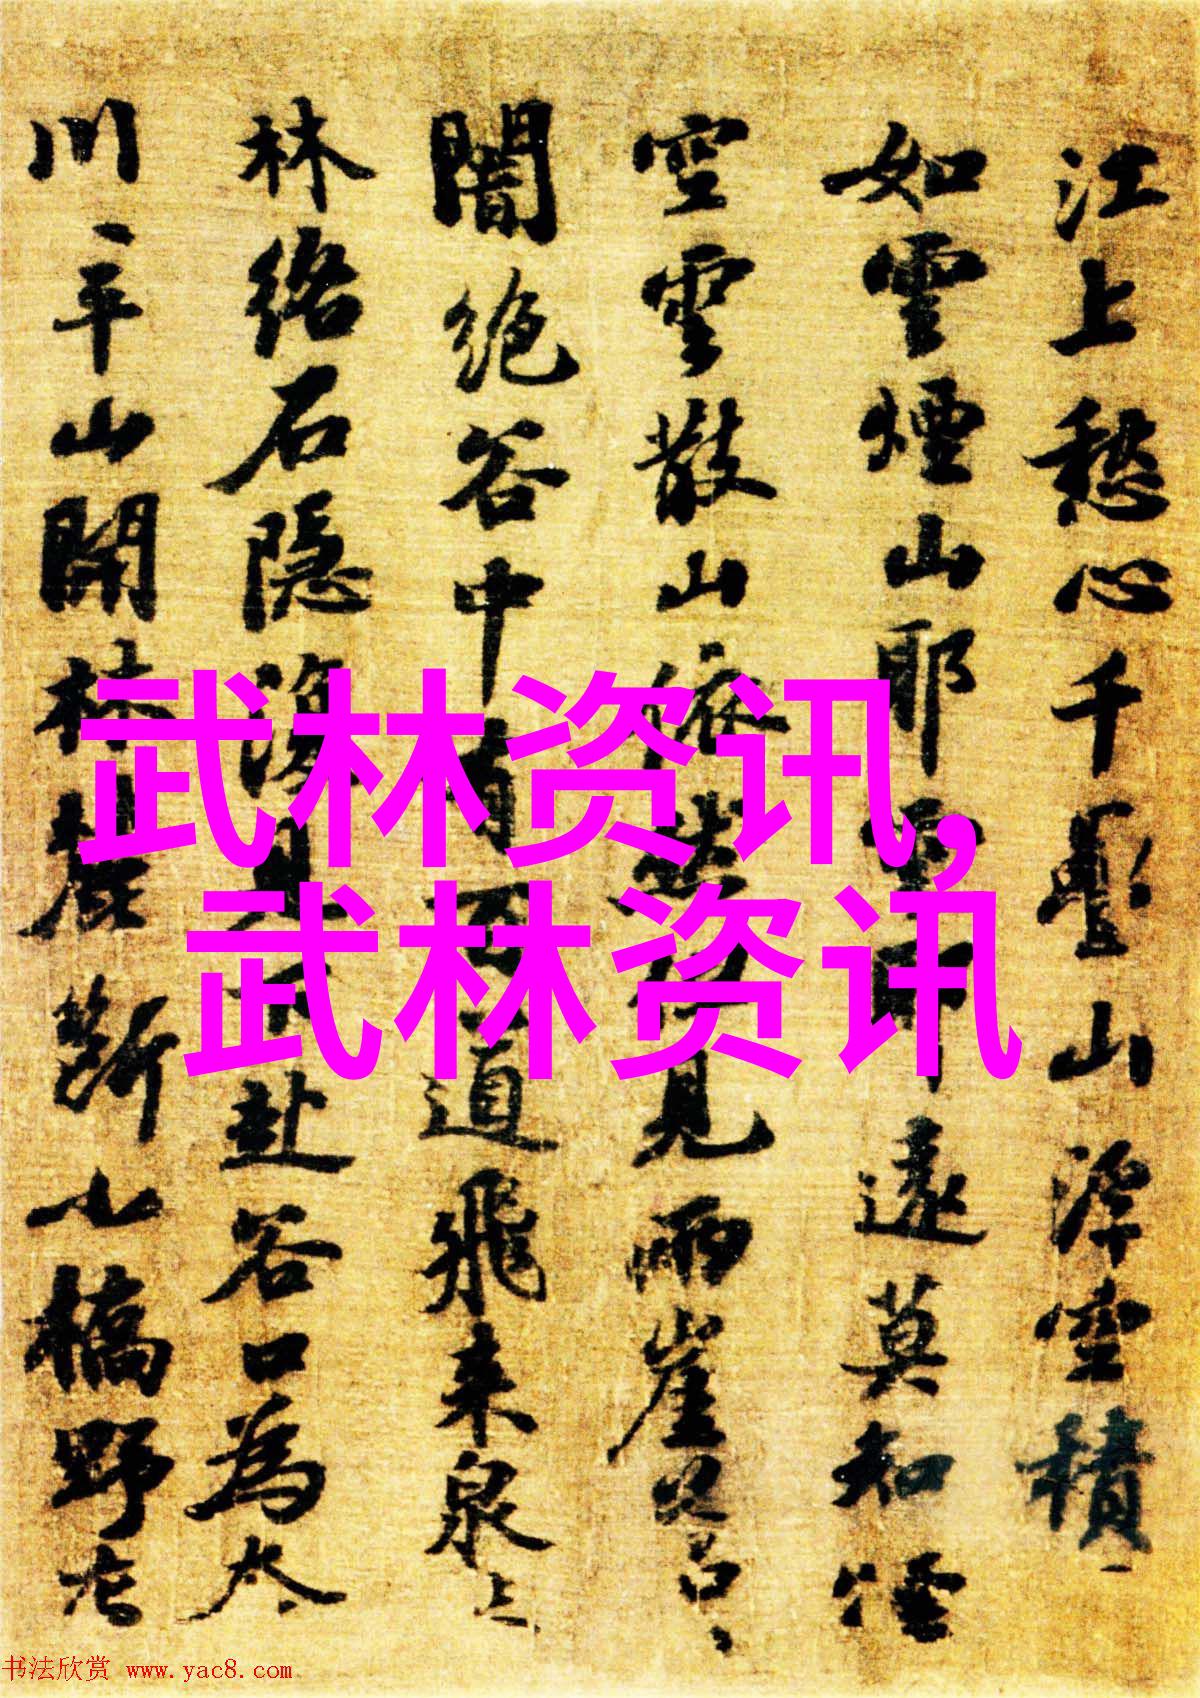 江上愁心千疊山浮空積
如雲煙山耶雲耶遠莫知煙
空雲散山依然但見兩崖
闇絶谷中有百道飛来泉
林絡石隱復見下赴谷口為
川平山開林麓斷小橋野
武林资讯,
武林资讯
书法欣赏 www.yac8.com